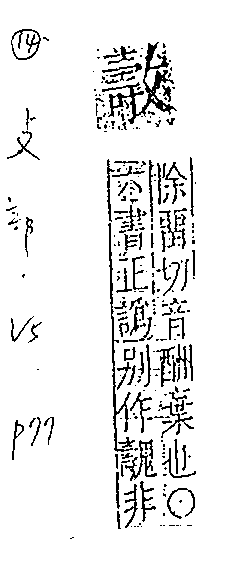 除畱切音酬棄也〇
六書正譌別作魗非
⑭
攴部.V5.P77